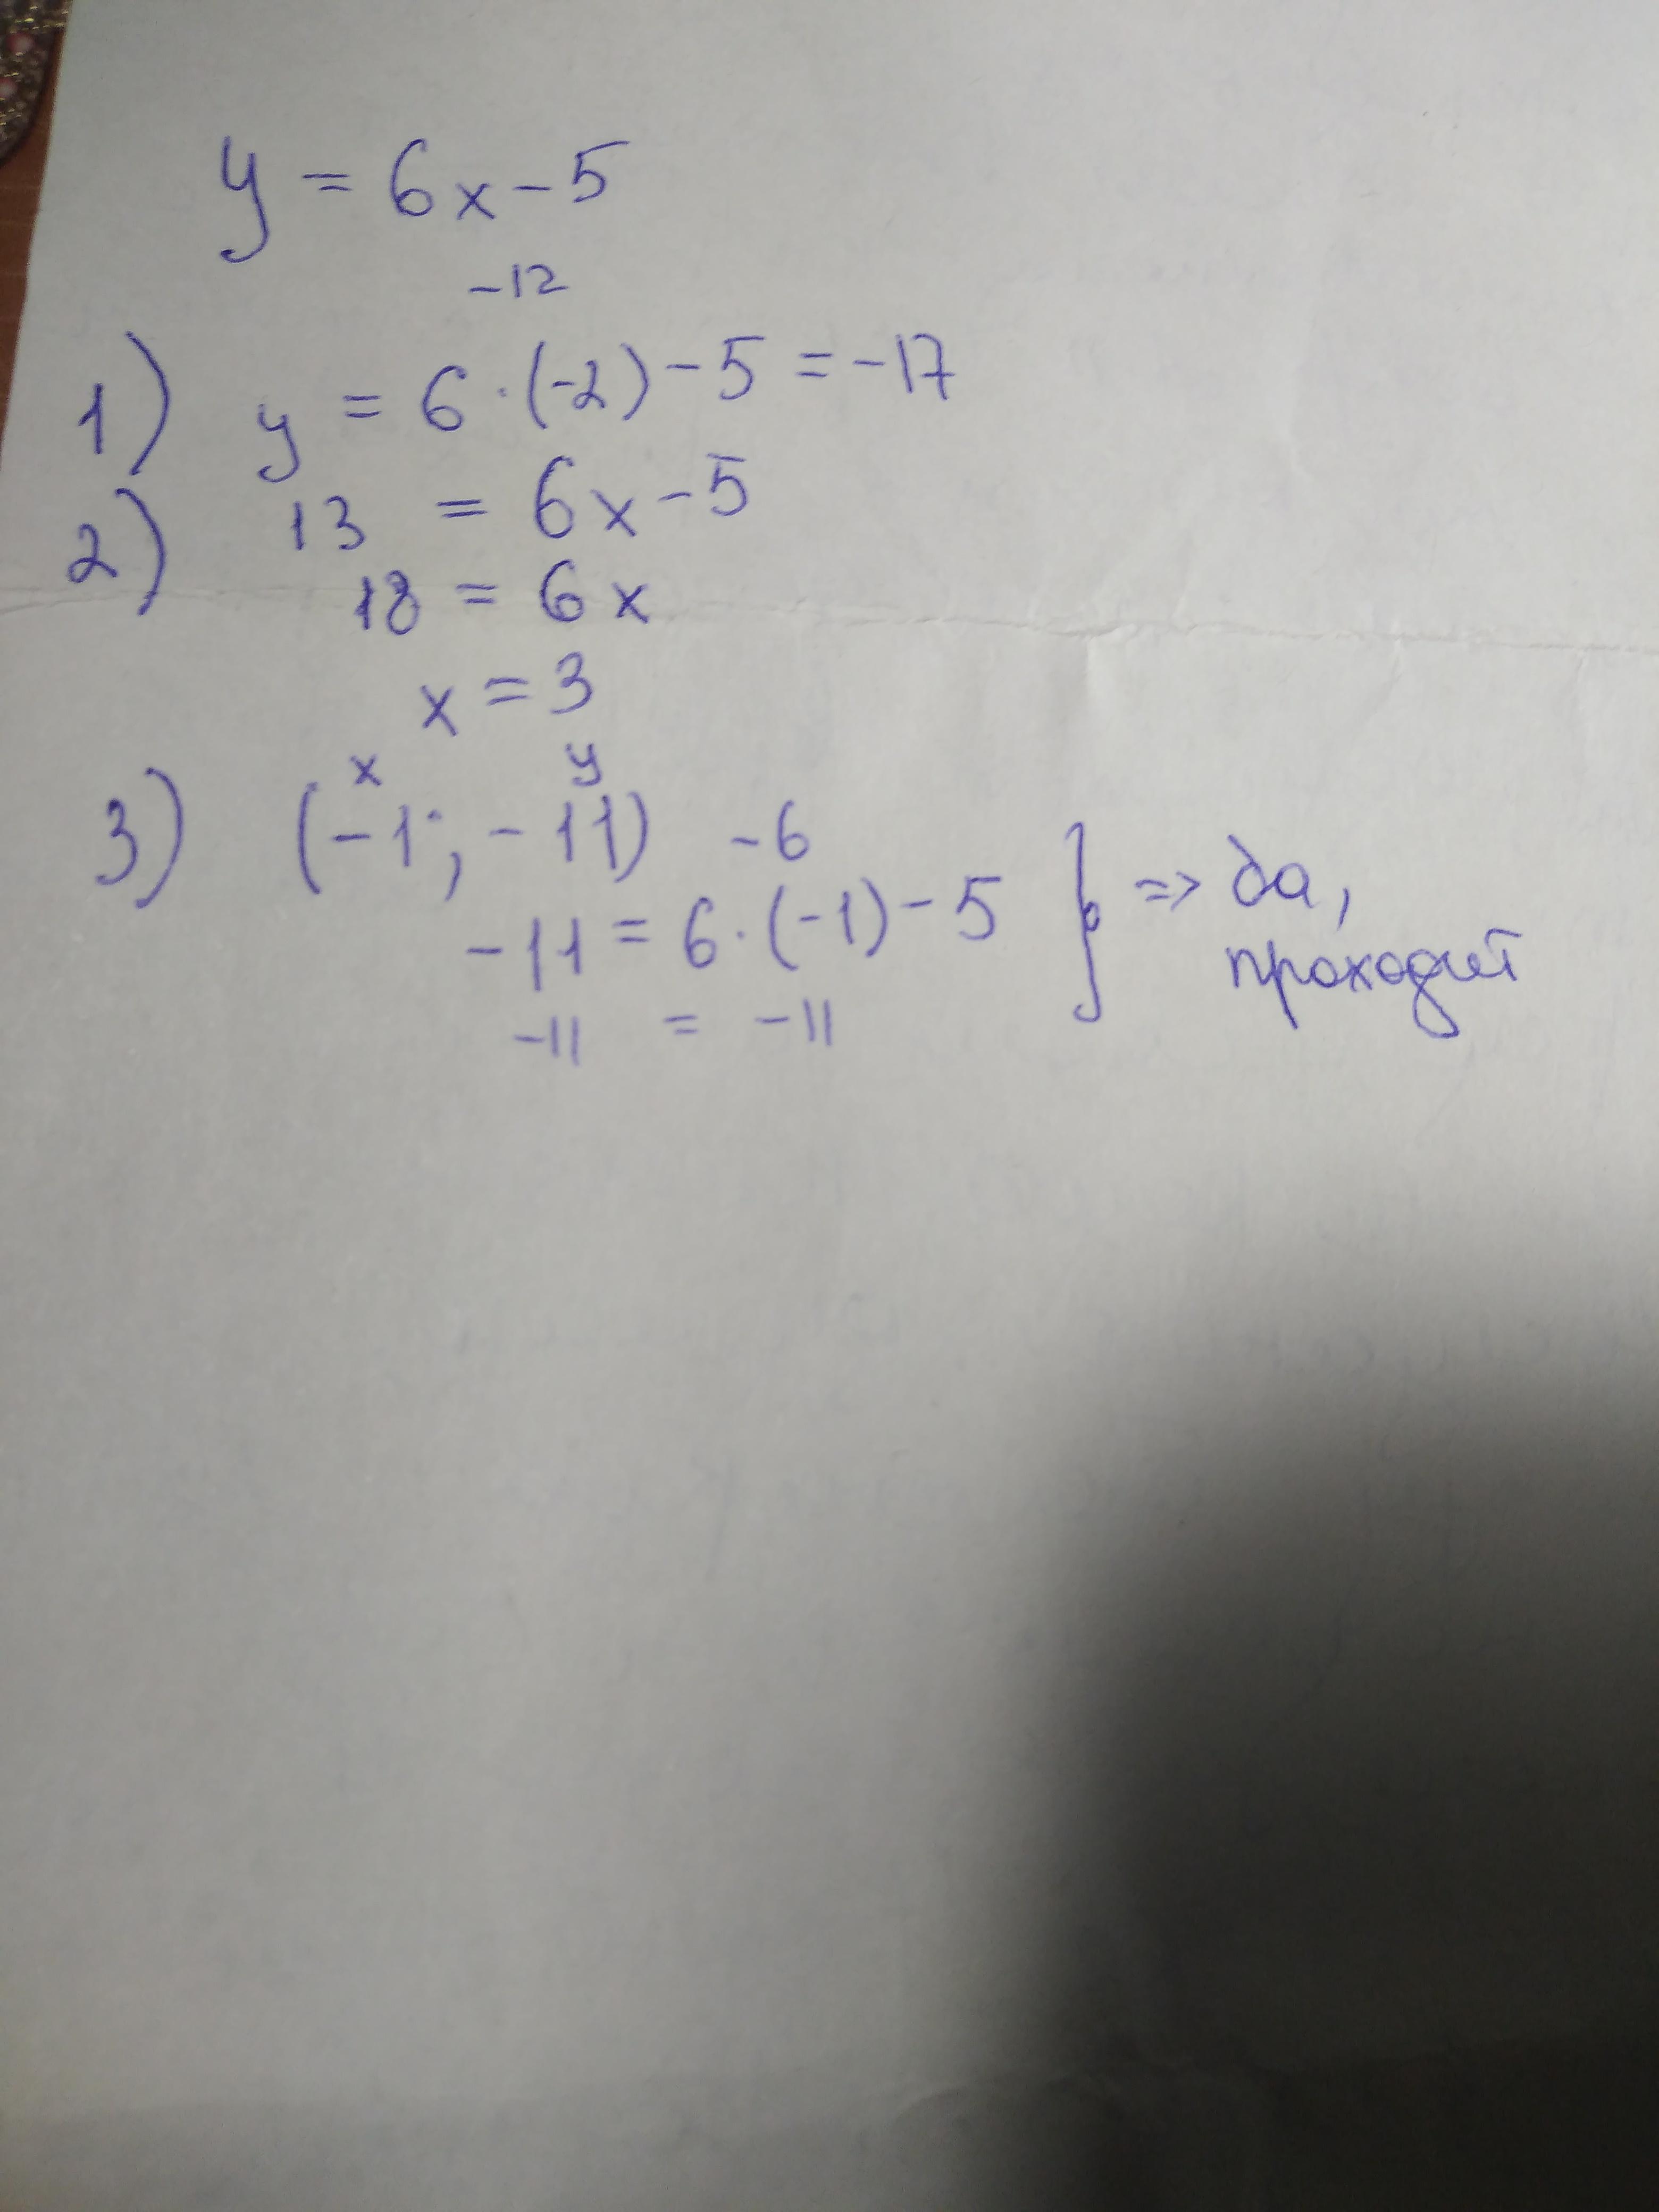 y = 6x - 5
-12
1) y = 6 · (-2) - 5 = -17
2) 13 = 6x - 5
18 = 6x
x = 3
x y
3) (-1; -11) -6
-11 = 6 · (-1) - 5 } => да,
проходит
-11 = -11